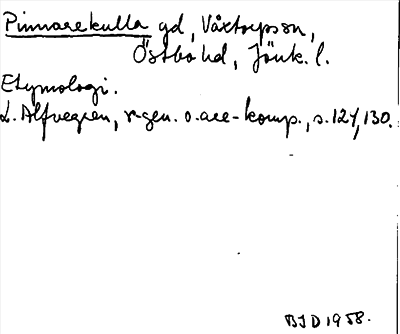 Pinnarekulla gd, Våxtorpssn,
Östbo hd, Jönk. l.
Etymologi.
L. Alfvegren, r-gen. o. are-komp., s. 127, 130.
BJD 1958.